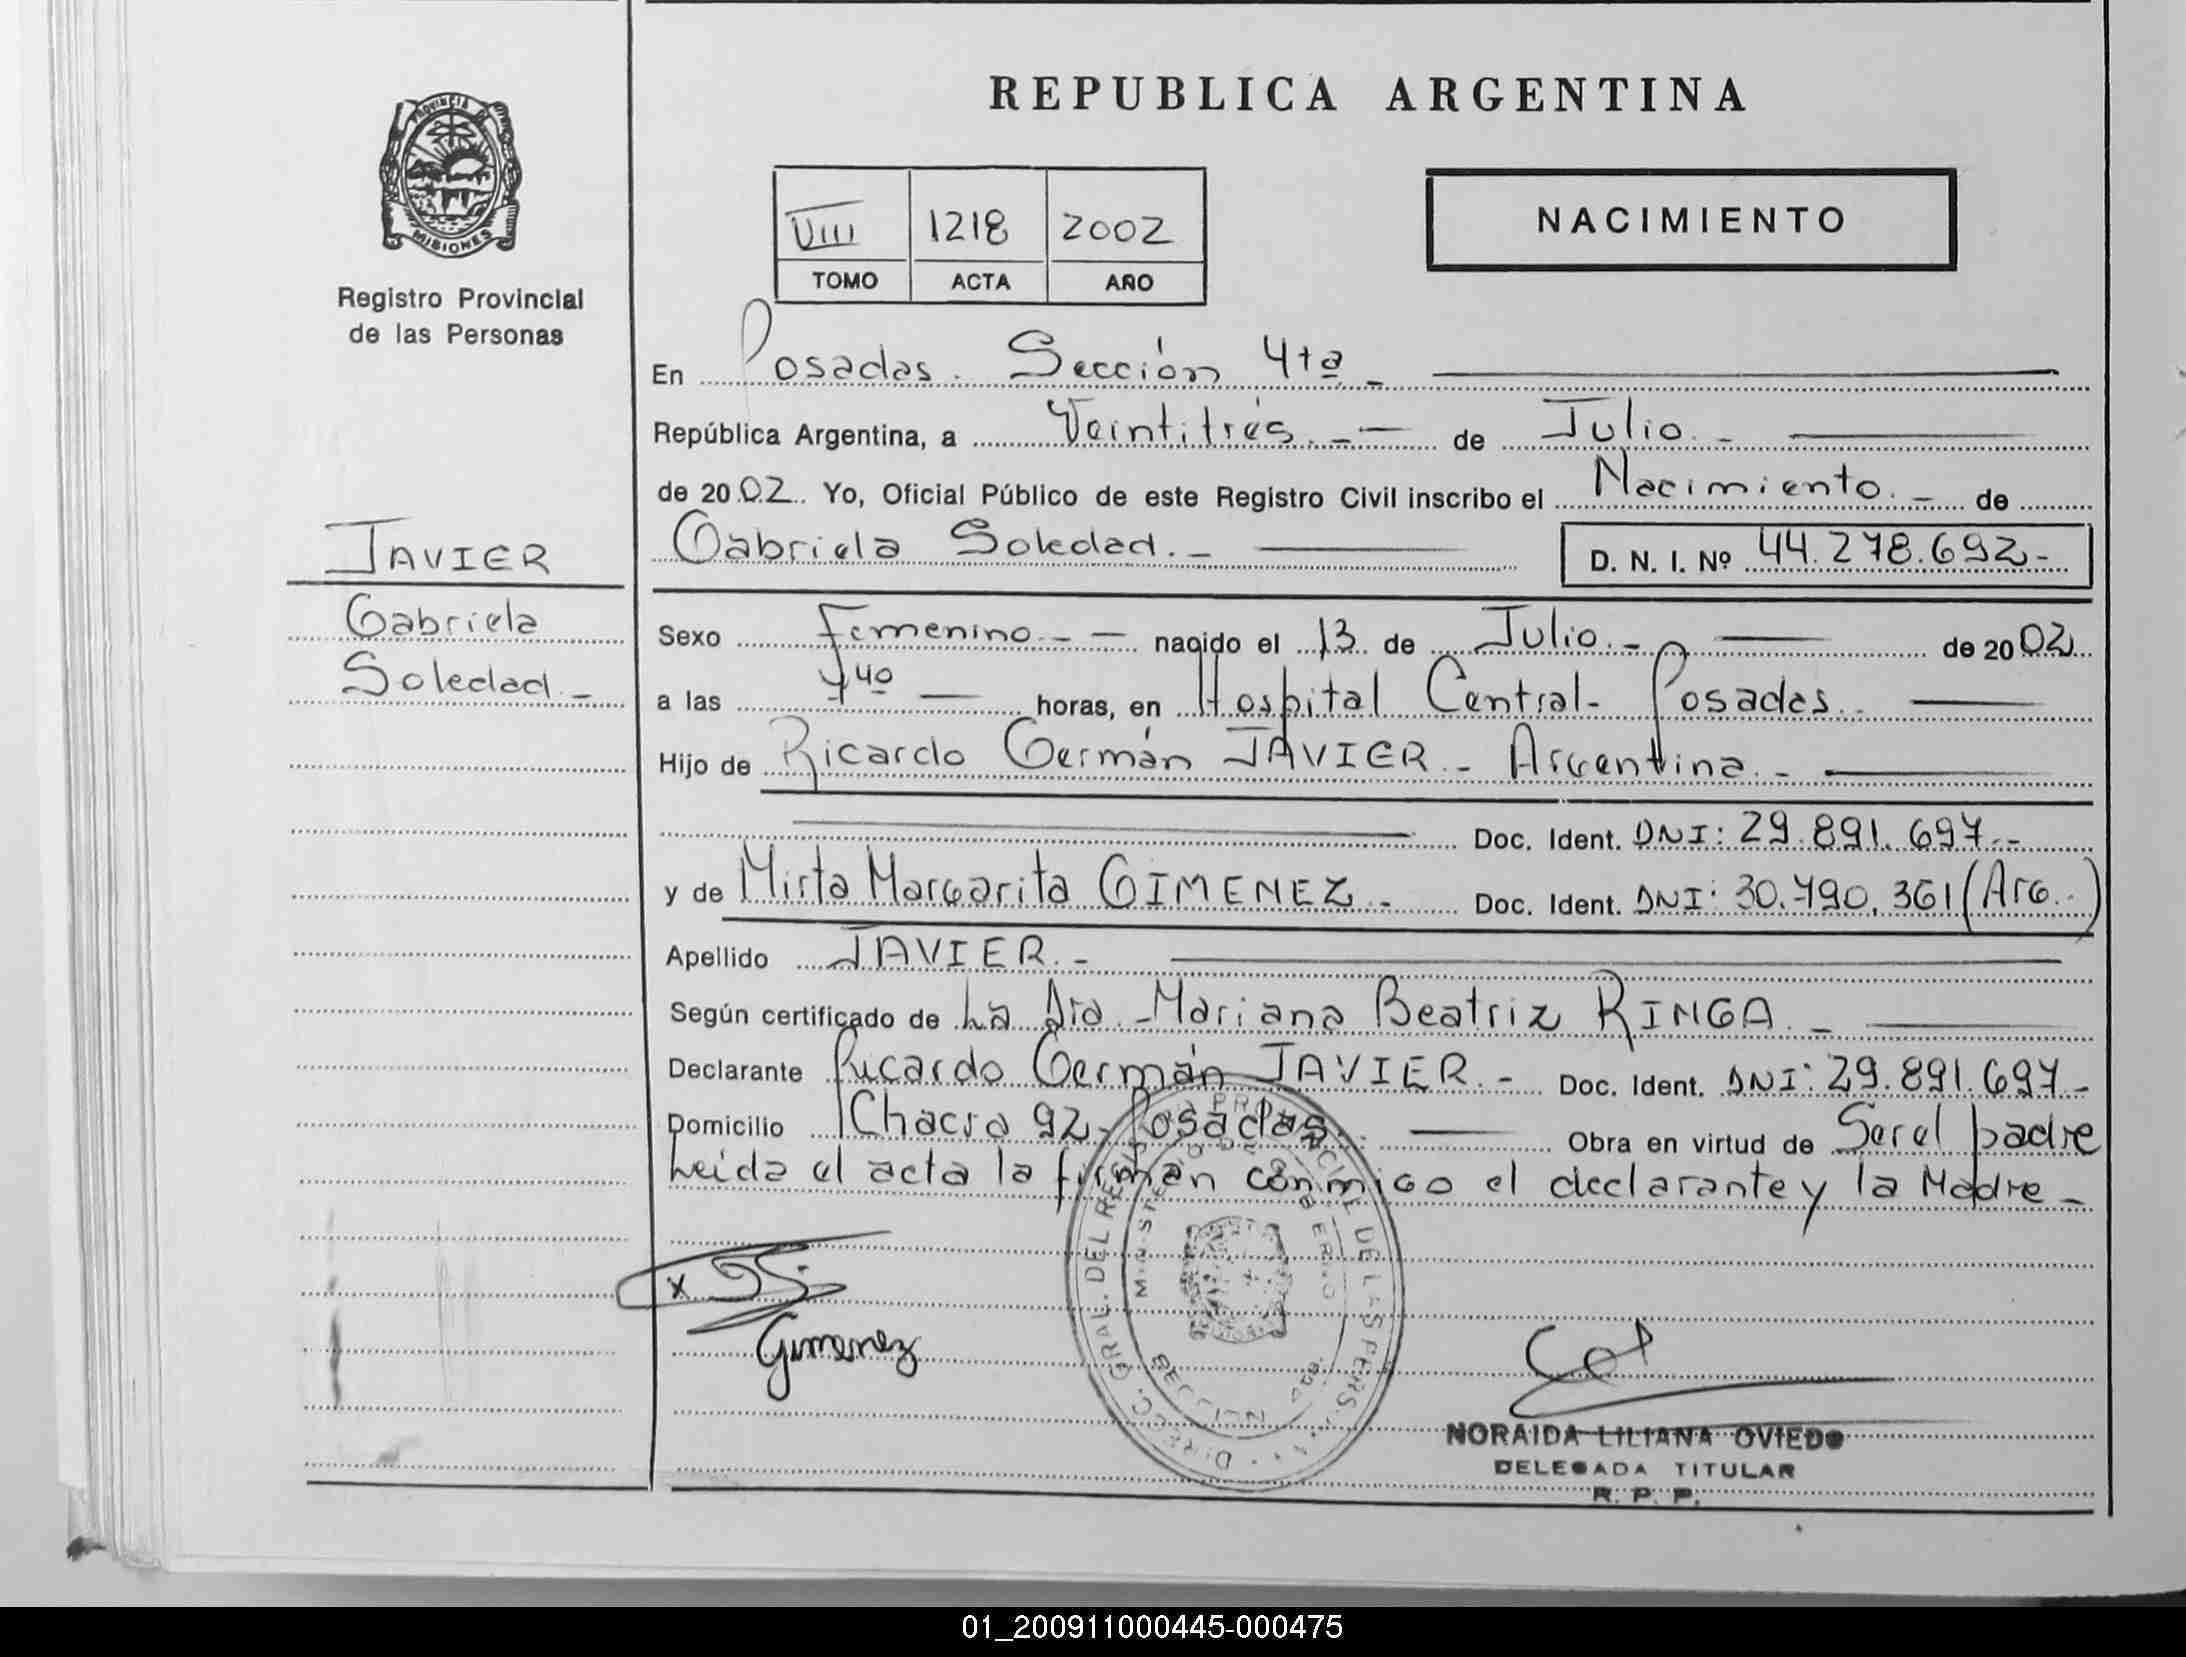 REPUBLICA ARGENTINA
PROVINCIA DE
MISIONES
Registro Provincial
de las Personas
VIII 1218 2002
TOMO ACTA AÑO
NACIMIENTO
En Posadas. Sección 4ta -
República Argentina, a Veintitrés. - de Julio. -
de 2002. Yo, Oficial Público de este Registro Civil inscribo el Nacimiento. - de
Gabriela Soledad. - D. N. I. Nº 44.278.692-
JAVIER
Gabriela
Soledad. -
Sexo Femenino. - nacido el 13 de Julio. - de 2002
a las 7 40 horas, en Hospital Central - Posadas.
Hijo de Ricardo Germán JAVIER - Argentina. -
Doc. Ident. DNI: 29.891.697.-
y de Mirta Margarita GIMENEZ. - Doc. Ident. DNI: 30.790.361 (Arg.)
Apellido JAVIER. -
Según certificado de La Dra. Mariana Beatriz RINGA. -
Declarante Ricardo Germán JAVIER. - Doc. Ident. DNI: 29.891.697-
Domicilio Chacra 92- Posadas. Obra en virtud de Ser el padre
Leida el acta la firman conmigo el declarante y la Madre -
x
Gimenez
NORAIDA LILIANA OVIEDO
DELEGADA TITULAR
R. P. P.
01_200911000445-000475